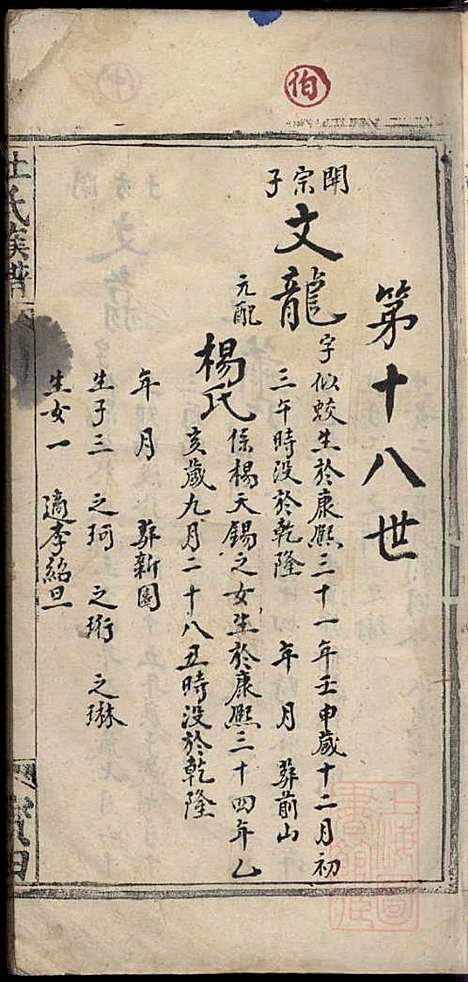 伯
第十八世
開宗子
文龍
字似蛟生於康熙三十一年壬申歲十二月初
三午時没於乾隆 年 月 葬前山
元配
楊氏
係楊天錫之女生於康熙三十四年乙
亥歲九月二十八丑時没於乾隆
年 月 葬新園
生子三 之珂 之珩 之琳
生女一 適李紹旦
杜氏族譜